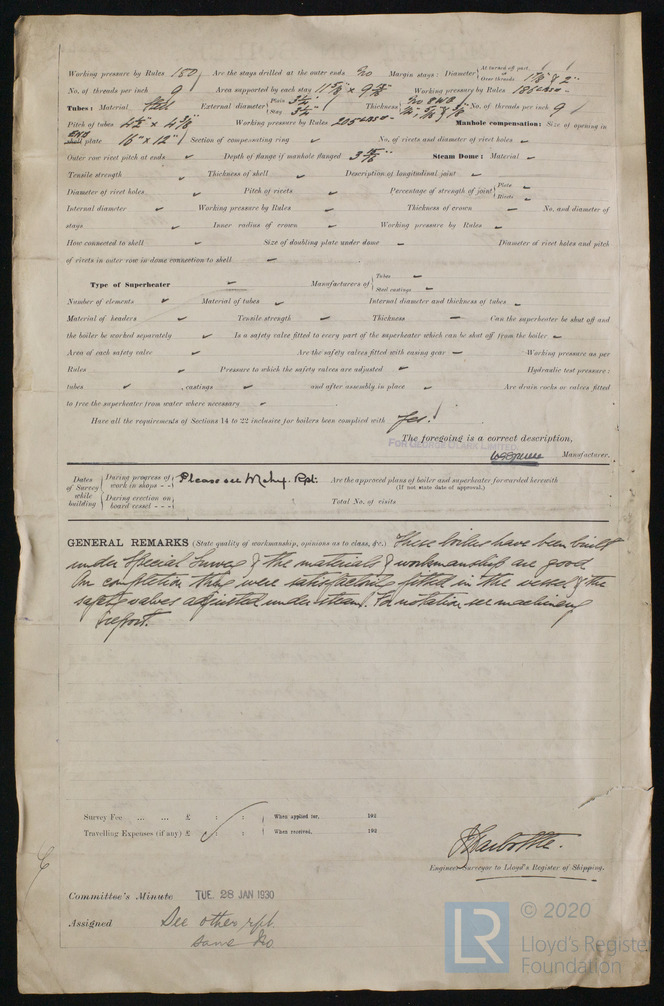 Working pressure by Rules 180 Are the stays drilled at the outer ends No Margin stays: Diameter { At turned off part, or Over threads 1 7/8" & 2"
No. of threads per inch 9 Area supported by each stay Working pressure by Rules
Tubes: Material Steel External diameter { Plain 3 1/2" Stay 3 1/2" Thickness { No. of threads per inch 9
Pitch of tubes Working pressure by Rules Manhole compensation: Size of opening in
END shell plate 16" x 12" Section of compensating ring ✓ No. of rivets and diameter of rivet holes -
Outer row rivet pitch at ends ✓ Depth of flange if manhole flanged Steam Dome: Material -
Tensile strength ✓ Thickness of shell ✓ Description of longitudinal joint -
Diameter of rivet holes ✓ Pitch of rivets ✓ Percentage of strength of joint { Plate - Rivets -
Internal diameter ✓ Working pressure by Rules ✓ Thickness of crown - No. and diameter of
stays ✓ Inner radius of crown ✓ Working pressure by Rules -
How connected to shell ✓ Size of doubling plate under dome - Diameter of rivet holes and pitch
of rivets in outer row in dome connection to shell ✓
Type of Superheater - Manufacturers of { Tubes - Steel castings -
Number of elements ✓ Material of tubes ✓ Internal diameter and thickness of tubes -
Material of headers ✓ Tensile strength ✓ Thickness - Can the superheater be shut off and
the boiler be worked separately ✓ Is a safety valve fitted to every part of the superheater which can be shut off from the boiler -
Area of each safety valve ✓ Are the safety valves fitted with easing gear - Working pressure as per
Rules ✓ Pressure to which the safety valves are adjusted ✓ Hydraulic test pressure:
tubes ✓ , castings ✓ and after assembly in place ✓ Are drain cocks or valves fitted
to free the superheater from water where necessary ✓
Have all the requirements of Sections 14 to 22 inclusive for boilers been complied with Yes.
The foregoing is a correct description,
FOR GEORGE CLARK LIMITED.
Manufacturer.
Dates of Survey while building { During progress of work in shops - - } Please see Mchy. Rpt. Are the approved plans of boiler and superheater forwarded herewith
(If not state date of approval.)
{ During erection on board vessel - - - } Total No. of visits
GENERAL REMARKS (State quality of workmanship, opinions as to class, &c.) These boilers have been built
under Special Survey & the materials & workmanship are good.
On completion they were satisfactorily fitted in the vessel & the
safety valves adjusted under steam. For notation see machinery
report.
Survey Fee ... ... £ : : When applied for, 192
Travelling Expenses (if any) £ : : When received, 192
Engineer Surveyor to Lloyd's Register of Shipping.
Committee's Minute TUE. 28 JAN 1930
Assigned See other rpt.
same No
LR © 2020
Lloyd's Register
Foundation